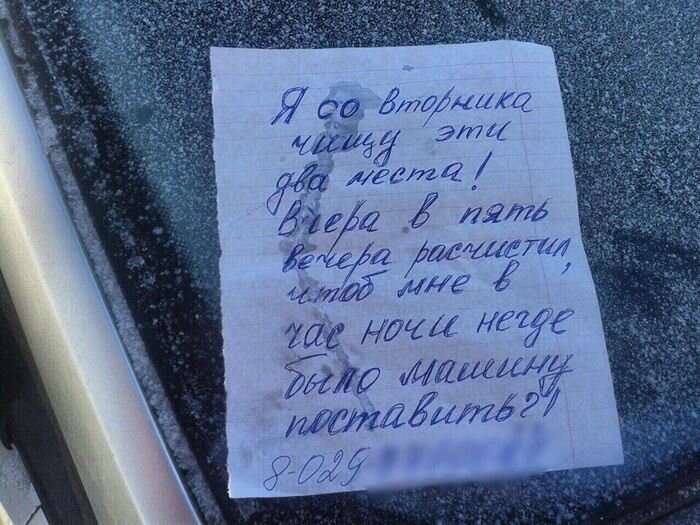 Я со вторника
чищу эти
два места!
Вчера в пять
вечера расчистил,
чтоб мне в
час ночи негде
было машину
поставить?!
8-029